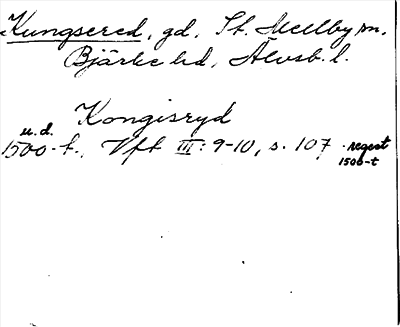 Kungsered, gd, St. Mellby sn,
Bjärke hd, Älvsb. l.
Kongisryd
u.d.
1500-t., Vft III: 9-10, s. 107 regest
1500-t